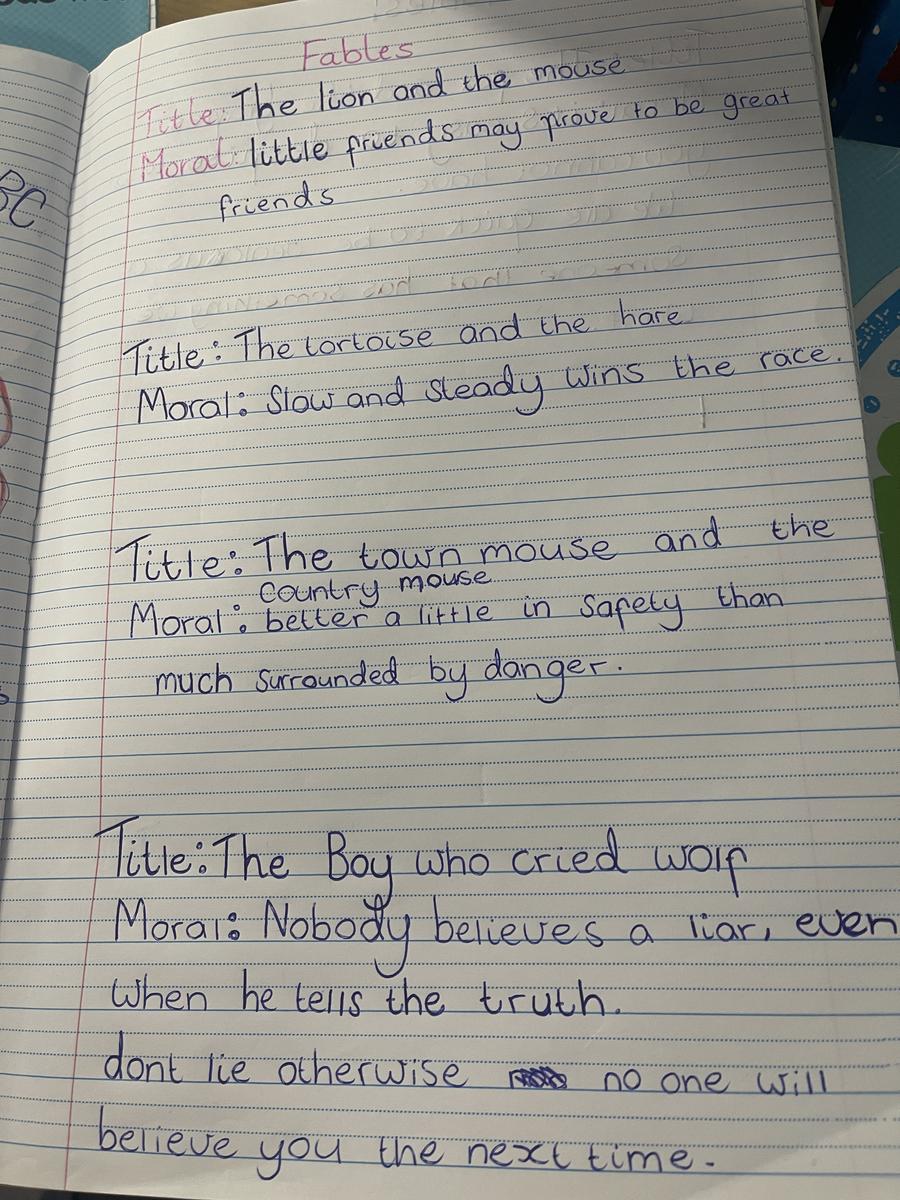 Fables
Title: The lion and the mouse
Moral: little friends may prove to be great
friends
Title: The tortoise and the hare
Moral: Slow and steady wins the race.
Title: The town mouse and the
country mouse
Moral: better a little in safety than
much surrounded by danger.
Title: The Boy who cried wolf
Moral: Nobody believes a liar, even
when he tells the truth.
dont lie otherwise no one will
believe you the next time.